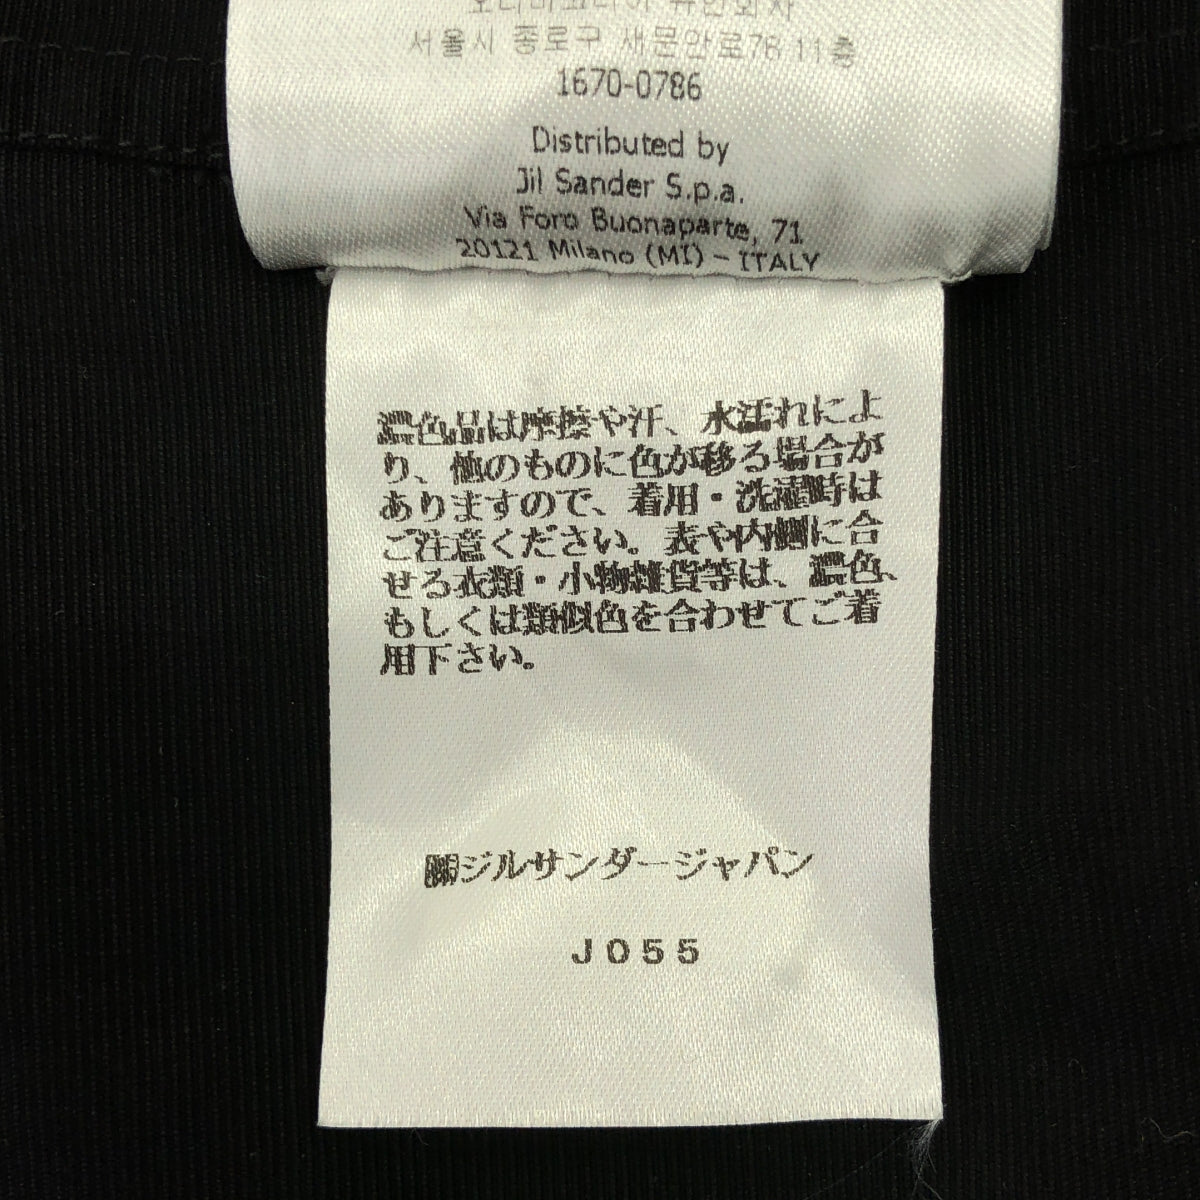 서울시 종로구 새문안로76 11층
1670-0786
Distributed by
Jil Sander S.p.a.
Via Foro Buonaparte, 71
20121 Milano (MI) - ITALY
濃色品は摩擦や汗、水濡れによ
り、他のものに色が移る場合が
ありますので、着用・洗濯時は
ご注意ください。表や内側に合
せる衣類・小物雑貨等は、濃色、
もしくは類似色を合わせてご着
用下さい。
㈱ジルサンダージャパン
J055